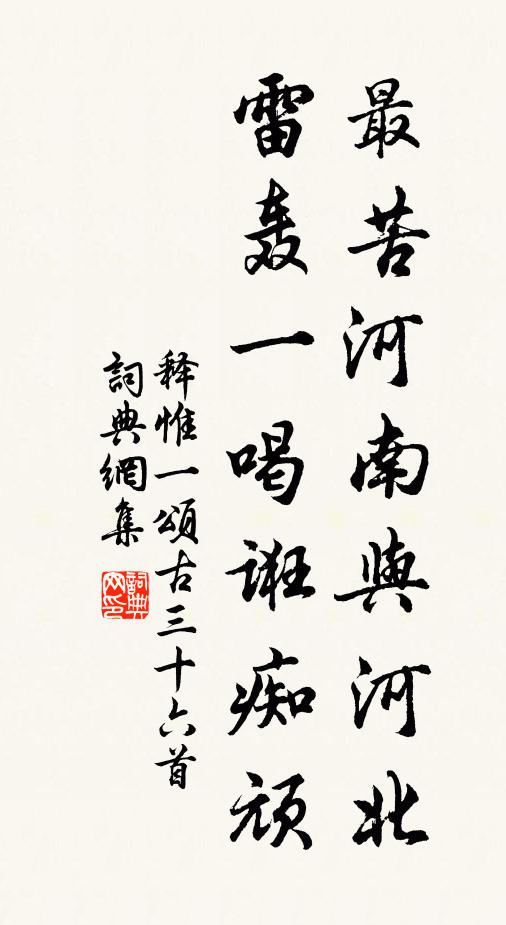 最苦河南與河北
雷轰一喝诳痴顽
释惟一頌古三十六首
詞典網集
詞典网印